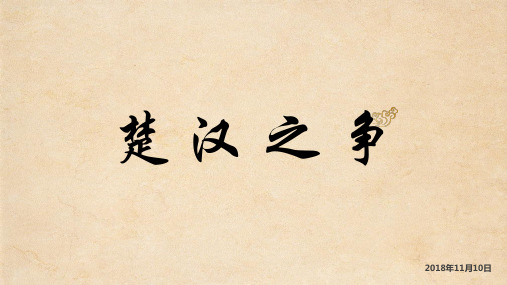 楚汉之争
2018年11月10日